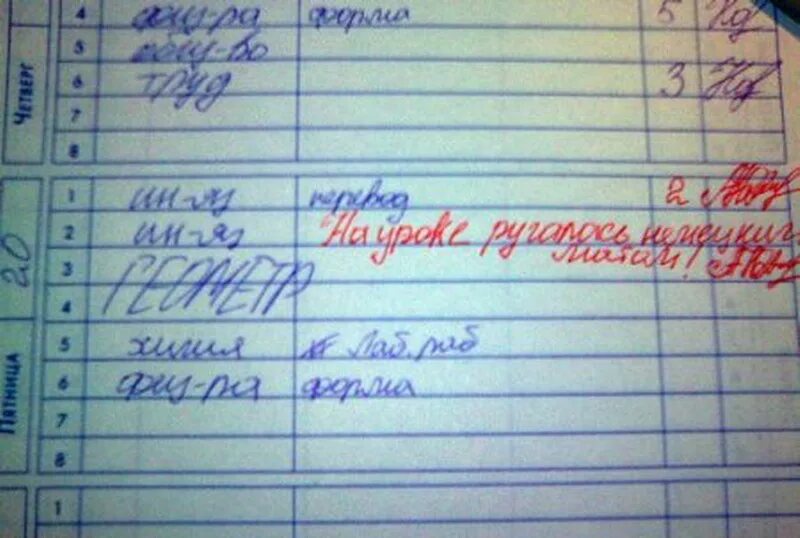 ЧЕТВЕРГ
4 физ-ра форма 5
5 общ-во
6 труд 3
7
8
20
ПЯТНИЦА
1 ин-яз перевод 2
2 ин-яз На уроке ругалась немецким
матом!
3 ГЕОМЕТР
4
5 химия Лаб. раб
6 физ-ра форма
7
8
1